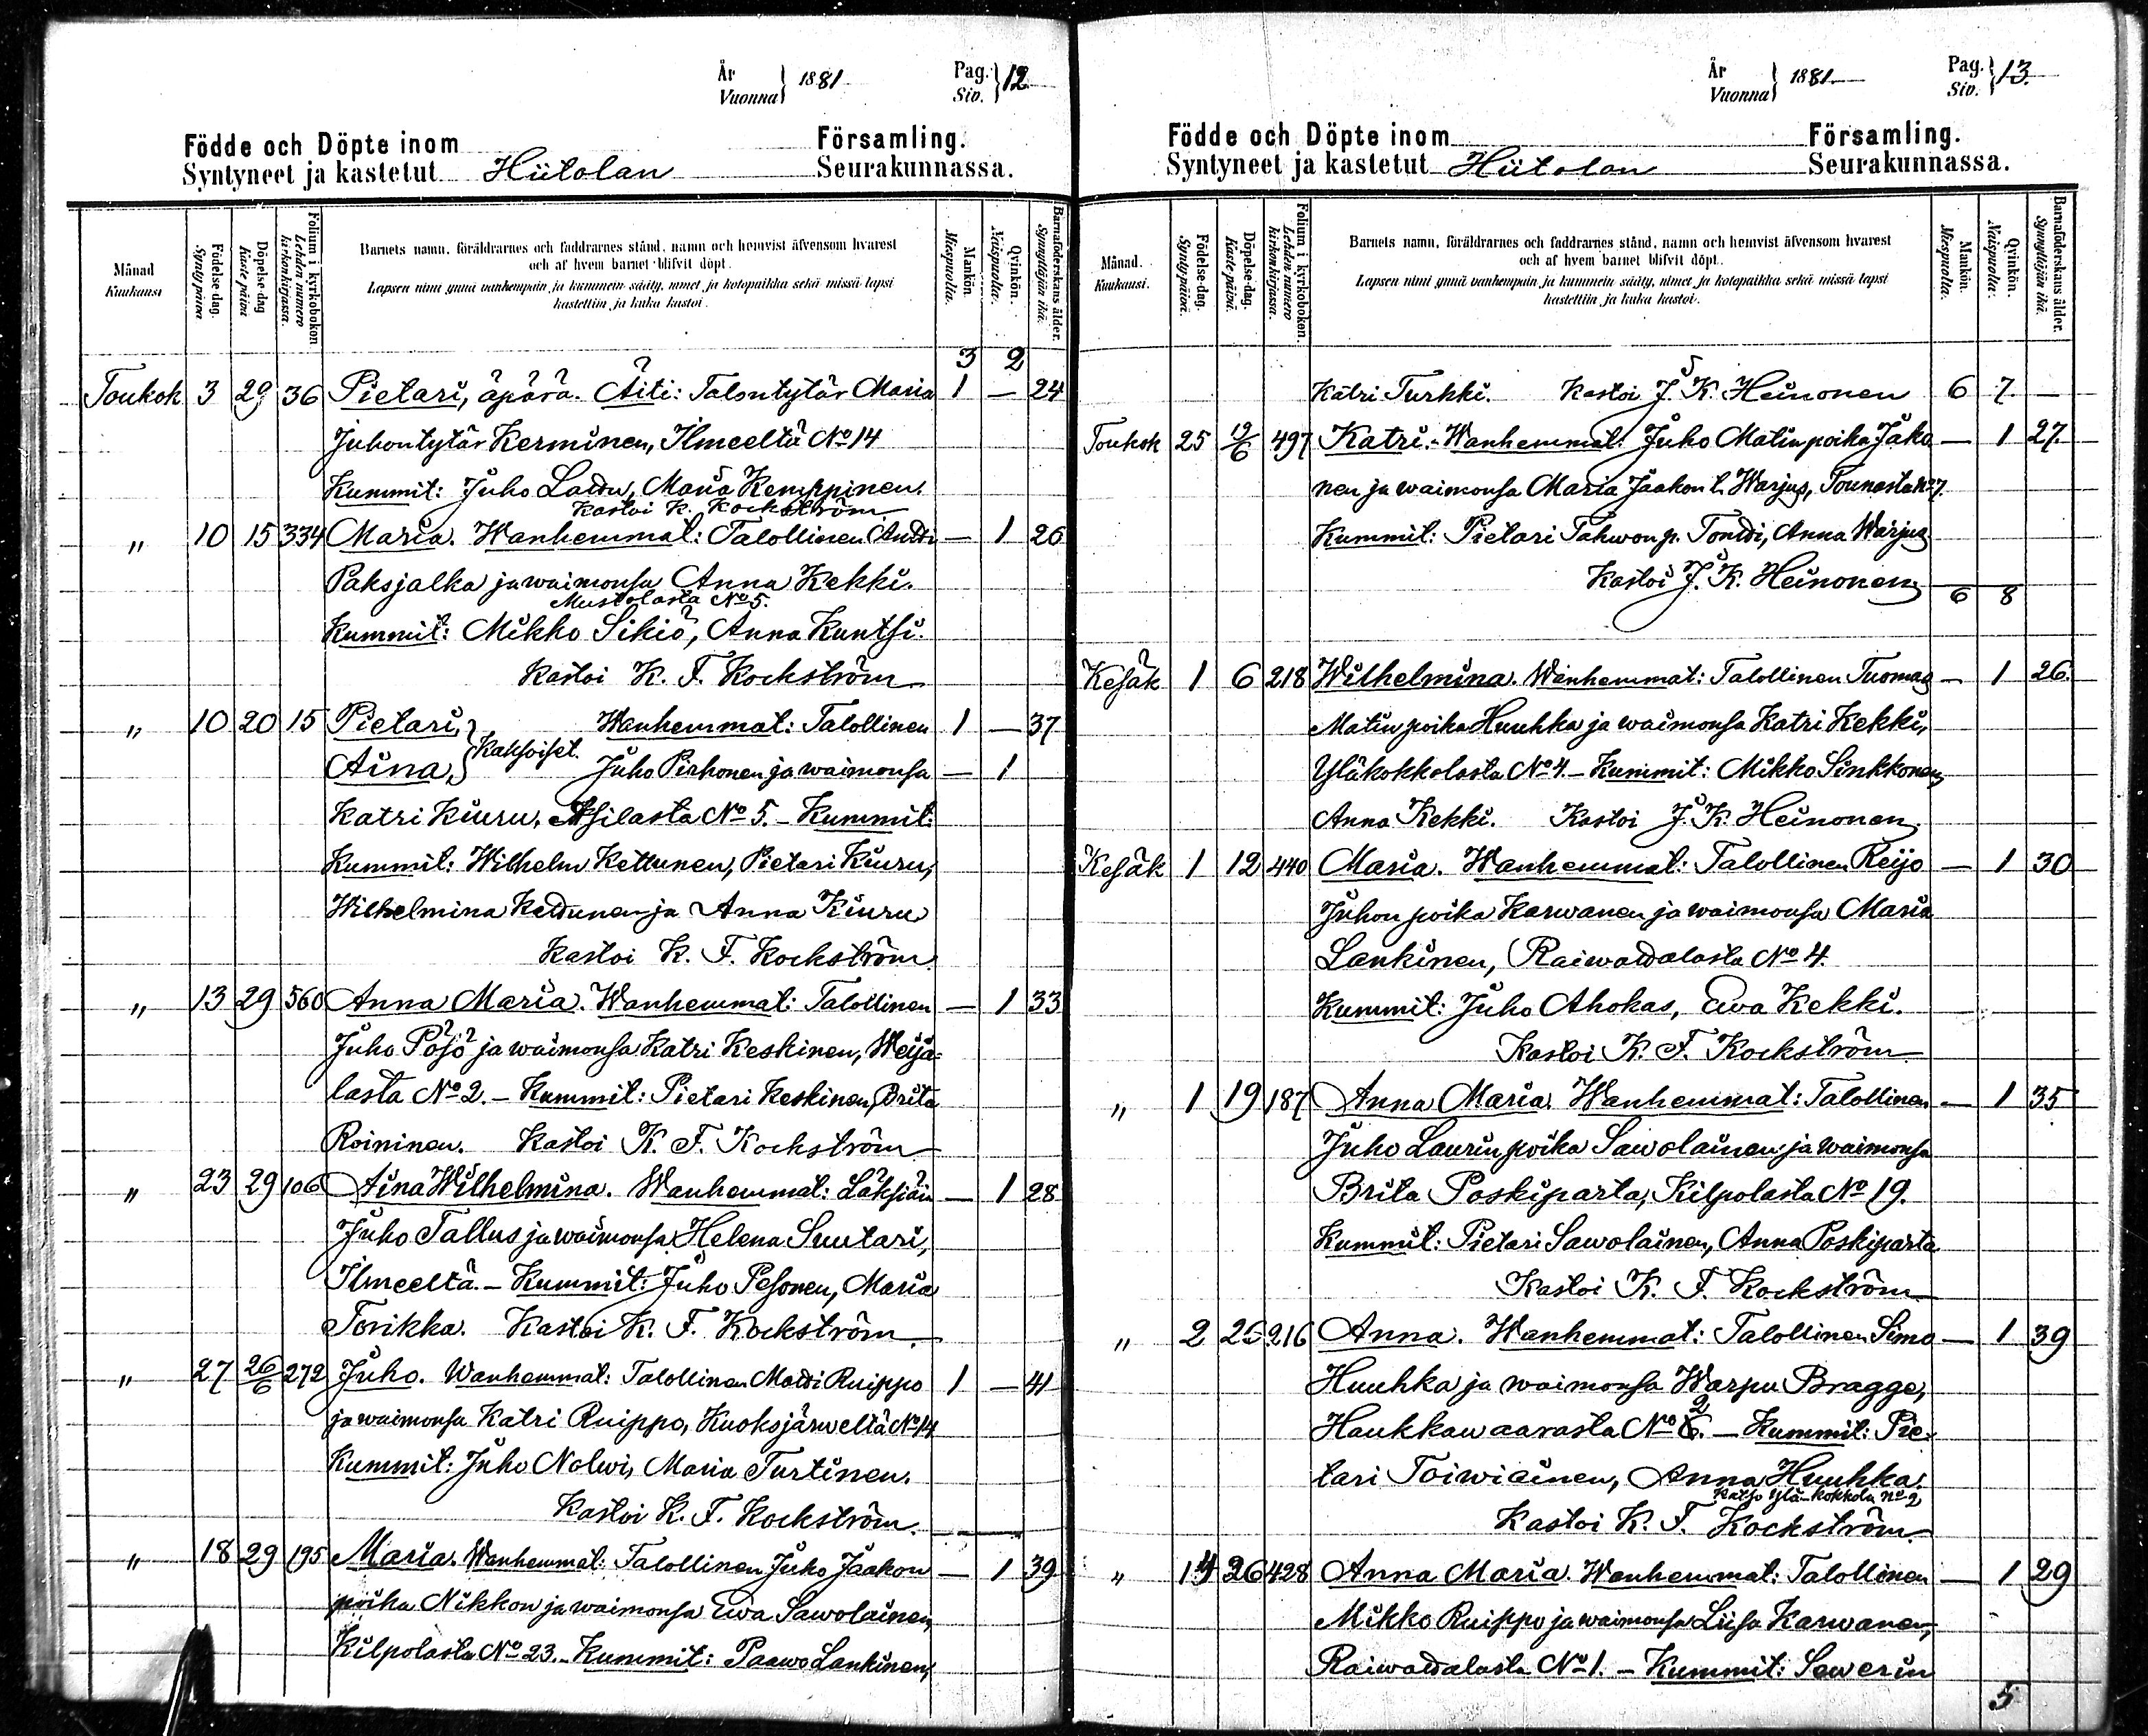 År
Vuonna } 1881
Pag.
Siv. } 12
Födde och Döpte inom Församling.
Syntyneet ja kastetut Hiitolan Seurakunnassa.
Månad
Kuukausi
Födelse-dag.
Syntypäivä
Döpelse-dag
Kaste-päivä
Folium i kyrkobokon
Lehden numero kirkonkirjassa.
Barnets namn, föräldrarnes och faddrarnes stånd, namn och hemvist äfvensom hvarest
och af hvem barnet blifvit döpt.
Lapsen nimi ynnä vanhempain ja kummein sääty, nimet ja kotopaikka sekä missä lapsi
kastettiin ja kuka kastoi.
Mankön.
Miespuolia.
Qvinkön.
Naispuolia.
Barnaföderskans ålder.
Synnyttäjän ikä.
3 2
Toukok 3 29 36 Pietari, äpärä. Äiti: Talontytär Maria 1 — 24
Juhontytär Kerminen, Ilmeeltä No 14
Kummit: Juho Lattu, Maria Kemppinen.
Kastoi K. Kockström
" 10 15 334 Maria. Wanhemmat: Talollinen Antti — 1 26
Paksjalka ja waimonsa Anna Kekki.
Mustolasta No 5.
Kummit: Mikko Sikiö, Anna Kuntsi.
Kastoi K. F. Kockström
" 10 20 15 Pietari, Wanhemmat: Talollinen 1 — 37
Aina, } Kaksoiset. Juho Pirhonen ja waimonsa — 1
Katri Kiuru, Asilasta No 5. - Kummit:
Kummit: Wilhelm Kettunen, Pietari Kiuru,
Wilhelmina Kettunen ja Anna Kiuru
Kastoi K. F. Kockström
" 13 29 560 Anna Maria. Wanhemmat: Talollinen — 1 33
Juho Pösö ja waimonsa Katri Keskinen, Weija-
lasta No 2. - Kummit: Pietari Keskinen, Brita
Roininen. Kastoi K. F. Kockström
" 23 29 106 Aina Wilhelmina. Wanhemmat: Läksiäin — 1 28
Juho Tallus ja waimonsa Helena Suutari,
Ilmeeltä. - Kummit: Juho Pesonen, Maria
Torikka. Kastoi K. F. Kockström
" 27 26/6 272 Juho. Wanhemmat: Talollinen Matti Ruippo 1 — 41
ja waimonsa Katri Ruippo, Kuoksjärweltä No 14
Kummit: Juho Nalwi, Maria Turtinen.
Kastoi K. F. Kockström.
" 18 29 195 Maria. Wanhemmat: Talollinen Juho Jaakon — 1 39
poika Nikkon ja waimonsa Ewa Sawolainen,
Kilpolasta No 23. - Kummit: Paawo Lankinen,
År
Vuonna } 1881
Pag.
Siv. } 13.
Födde och Döpte inom Församling.
Syntyneet ja kastetut Hiitolan Seurakunnassa.
Månad.
Kuukausi.
Födelse-dag.
Syntypäivä.
Döpelse-dag.
Kaste-päivä.
Folium i kyrkobokon.
Lehden numero kirkonkirjassa.
Barnets namn, föräldrarnes och faddrarnes stånd, namn och hemvist äfvensom hvarest
och af hvem barnet blifvit döpt.
Lapsen nimi ynnä vanhempain ja kummein sääty, nimet ja kotopaikka sekä missä lapsi
kastettiin ja kuka kastoi.
Mankön.
Miespuolia.
Qvinkön.
Naispuolia.
Barnaföderskans ålder.
Synnyttäjän ikä.
Katri Turkki. Kastoi J. K. Heinonen 6 7. —
Toukok 25 12/6 497 Katri. - Wanhemmat: Juho Matin poika Jako — 1 27.
nen ja waimonsa Maria Jaakon t. Warjus, Tounasta No 7.
Kummit: Pietari Tahwon p. Tontti, Anna Warjus
Kastoi J. K. Heinonen 6 8
Kesäk 1 6 218 Wilhelmina. Wanhemmat: Talollinen Tuomas — 1 26.
Matin poika Huuhka ja waimonsa Katri Kekki,
Yläkokkolasta No 4. - Kummit: Mikko Sinkkonen,
Anna Kekki. Kastoi J. K. Heinonen
Kesäk 1 12 440 Maria. Wanhemmat: Talollinen Reijo — 1 30
Juhon poika Karwanen ja waimonsa Maria
Lankinen, Raiwattalasta No 4.
Kummit: Juho Ahokas, Ewa Kekki.
Kastoi K. F. Kockström
" 1 19 187 Anna Maria. Wanhemmat: Talollinen — 1 35
Juho Laurin poika Sawolainen ja waimonsa
Brita Poskiparta, Kilpolasta No 19.
Kummit: Pietari Sawolainen, Anna Poskiparta
Kastoi K. F. Kockström
" 2 25 216 Anna. Wanhemmat: Talollinen Simo — 1 39
Huuhka ja waimonsa Warpu Bragge,
2
Haukkawaarasta No 6. - Kummit: Pie-
tari Toiwiainen, Anna Huuhka.
Katso Ylä-Kokkola No 2
Kastoi K. F. Kockström
" 14 26 428 Anna Maria. Wanhemmat: Talollinen — 1 29
Mikko Ruippo ja waimonsa Liisa Karwanen,
Raiwattalasta No 1. - Kummit: Sewerin
5